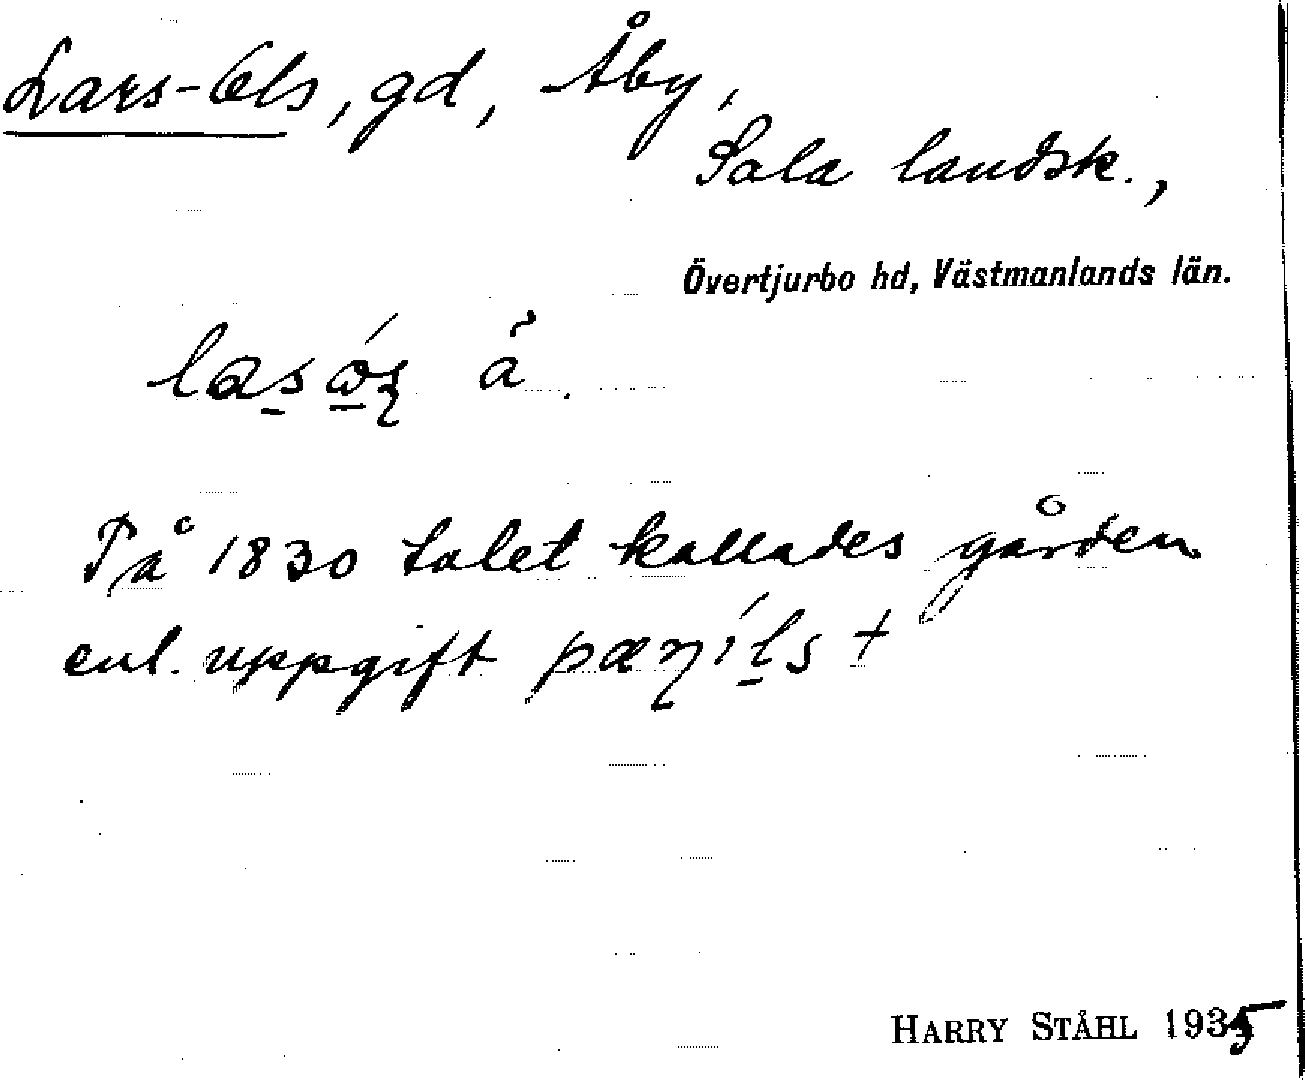 Lars-Ols, gd, Åby,
Sala landsk.,
Övertjurbo hd, Västmanlands län.
På 1830 talet kallades gården
enl. uppgift
HARRY STÅHL 1935